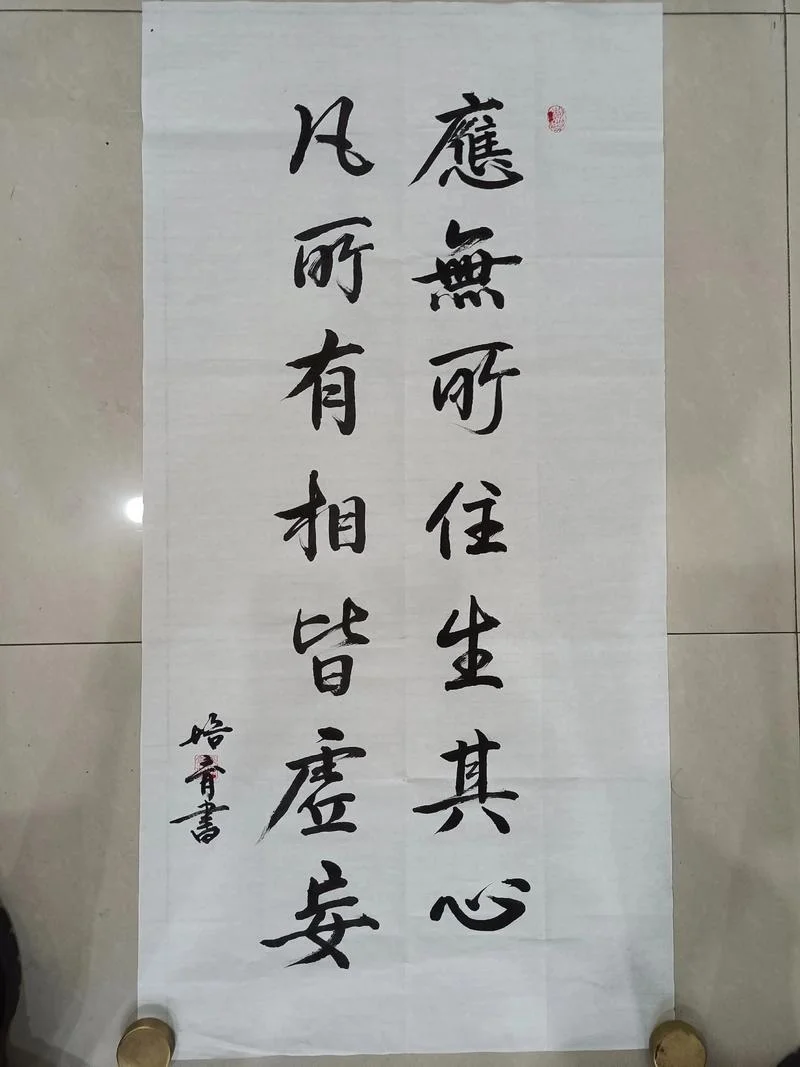 應無所住生其心
凡所有相皆虛妄
培育書